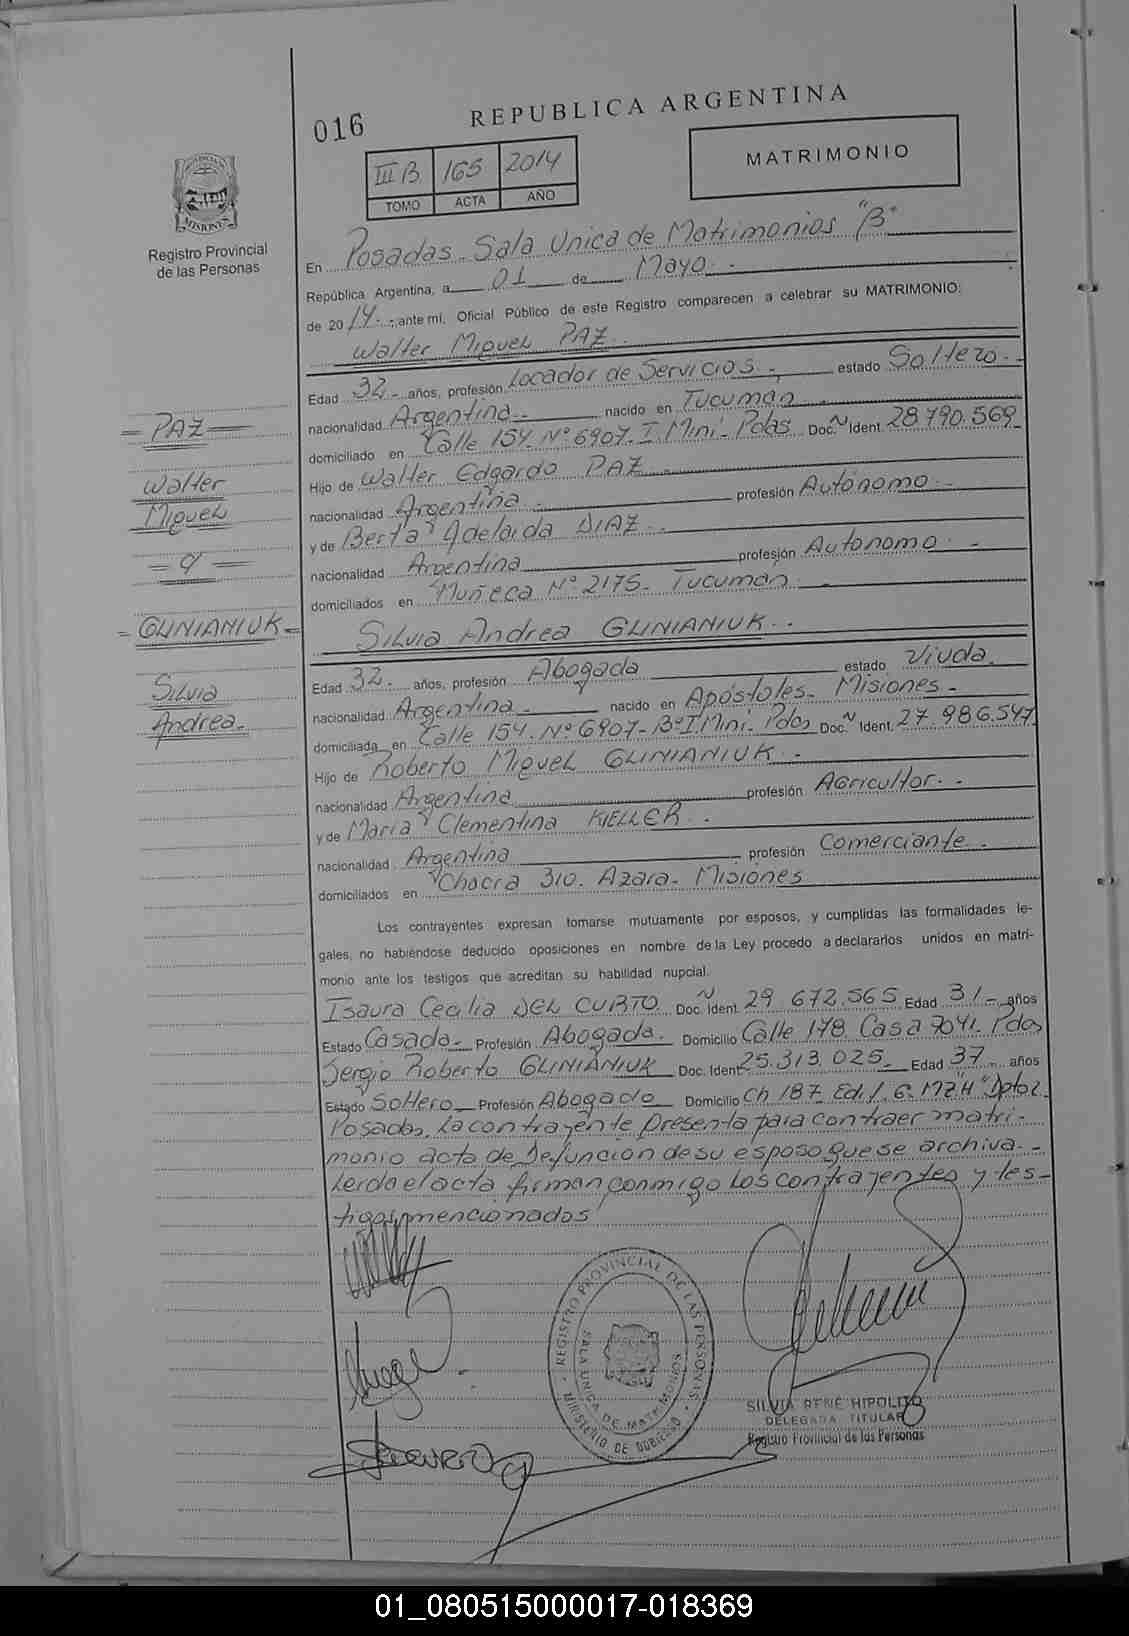 016
REPUBLICA ARGENTINA
III B 165 2014
TOMO ACTA AÑO
MATRIMONIO
PROVINCIA DE
MISIONES
Registro Provincial
de las Personas
En Posadas. Sala Unica de Matrimonios "B"
República Argentina, a 01 de Mayo.-
de 2014.-, ante mí, Oficial Público de este Registro comparecen a celebrar su MATRIMONIO:
Walter Miguel PAZ.
Edad 32.- años, profesión Locador de Servicios.- estado Soltero.-
nacionalidad Argentina.- nacido en Tucumán.-
domiciliado en Calle 154. Nº 6907. I. Mini- Pdas Doc. N Ident. 28.790.569
Hijo de Walter Edgardo PAZ.-
nacionalidad Argentina.- profesión Autónomo.-
y de Berta Adelaida DIAZ.-
nacionalidad Argentina profesión Autonomo.-
domiciliados en Muñeca Nº 2175- Tucumán.-
Silvia Andrea GLINIANIUK.-
Edad 32.- años, profesión Abogada estado Viuda.
nacionalidad Argentina.- nacido en Apóstoles- Misiones.-
domiciliada en Calle 154. Nº 6907- Bº I. Mini- Pdas Doc. N Ident. 27.986.547
Hijo de Roberto Miguel GLINIANIUK.-
nacionalidad Argentina profesión Agricultor.-
y de Maria Clementina KIELLER.-
nacionalidad Argentina profesión Comerciante.-
domiciliados en Chacra 310. Azara- Misiones
Los contrayentes expresan tomarse mutuamente por esposos, y cumplidas las formalidades le-
gales, no habiéndose deducido oposiciones en nombre de la Ley procedo a declararlos unidos en matri-
monio ante los testigos que acreditan su habilidad nupcial.
Isaura Cecilia DEL CURTO Doc. N Ident. 29.672.565 Edad 31- años
Estado Casada- Profesión Abogada. Domicilio Calle 148. Casa 9041. Pdas
Sergio Roberto GLINIANIUK Doc. Ident. 25.313.025- Edad 37- años
Estado Soltero- Profesión Abogado Domicilio Ch 187. Ed. 1. "H" Dpto 2
Posadas. La contrayente presenta para contraer matri-
monio acta de Defuncion de su esposo que se archiva.-
Leida el acta firman conmigo los contrayentes y tes-
tigos mencionados
= PAZ =
Walter
Miguel
= y =
= GLINIANIUK =
Silvia
Andrea.-
REGISTRO PROVINCIAL DE LAS PERSONAS
SALA UNICA DE MATRIMONIOS
MINISTERIO DE GOBIERNO
SILVIA RENE HIPOLITO
DELEGADA TITULAR
Registro Provincial de las Personas
01_080515000017-018369